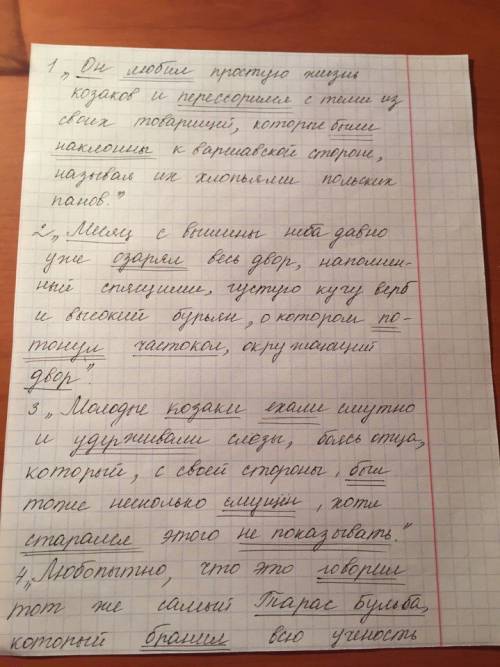 1 „Он любил простую жизнь
козаков и перессорился с теми из
своих товарищей, которые были
наклонны к варшавской стороне,
называя их хлопьями польских
панов."
2 „Месяц с вышины неба давно
уже озарял весь двор, наполнен-
ный спящими, густую кучу верб
и высокий бурьян, о котором по-
тонул частокол, окружающий
двор".
3 „Молодые козаки ехали смутно
и удерживали слезы, боясь отца,
который, с своей стороны, был
тоже несколько смущён, хотя
старался этого не показывать."
4 „Любопытно, что это говорил
тот же самый Тарас Бульба,
который бранил всю ученость